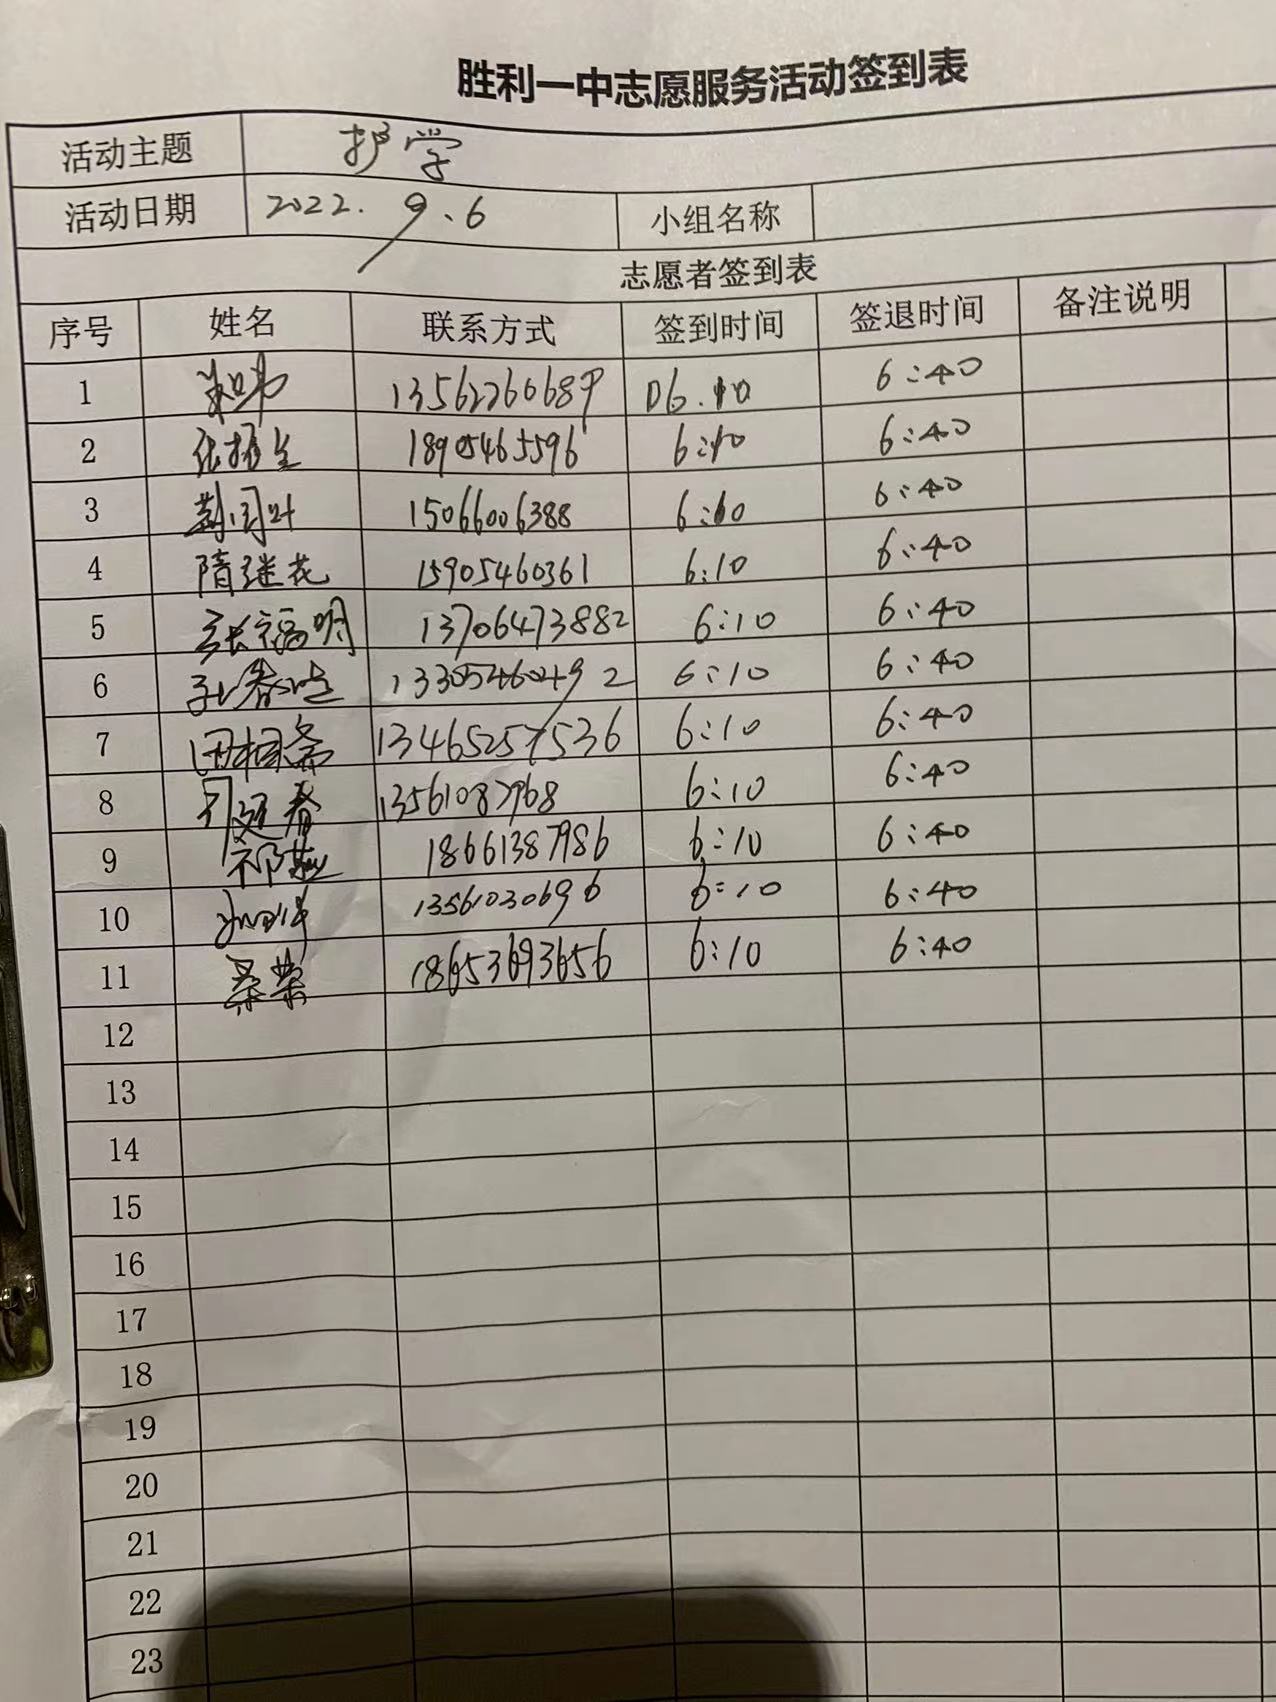 胜利一中志愿服务活动签到表
活动主题 护学
活动日期 2022.9.6 小组名称
志愿者签到表
序号 姓名 联系方式 签到时间 签退时间 备注说明
1 13562260689 06.10 6:40
2 张振生 18905465596 6:10 6:40
3 荆月叶 15066006388 6:10 6:40
4 隋继花 15905460361 6:10 6:40
5 张福明 13706473882 6:10 6:40
6 13305460492 6:10 6:40
7 田相斋 13465257536 6:10 6:40
8 13561087968 6:10 6:40
9 祁燕 18661387986 6:10 6:40
10 13561030696 6:10 6:40
11 桑荣 18653693656 6:10 6:40
12
13
14
15
16
17
18
19
20
21
22
23